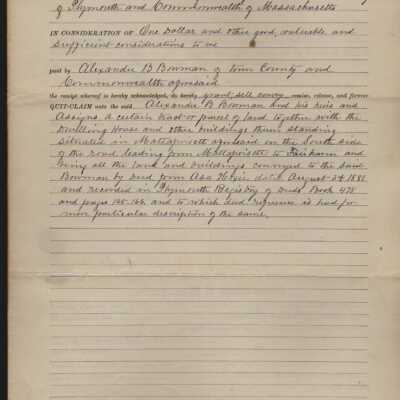 of Plymouth and Commonwealth of Massachusetts
IN CONSIDERATION OF One Dollar and other good, valuable and
sufficient considerations to me
paid by Alexander B Bowman of town County and
Commonwealth aforesaid
the receipt whereof is hereby acknowledged, do hereby grant, sell convey remise, release, and forever
QUIT-CLAIM unto the said Alexander B Bowman and his heirs and
Assigns, a certain tract or parcel of land together with the
Dwelling House and other buildings thereon standing
situated in Mattapoisett aforesaid on the South side
of the road leading from Mattapoisett to Fairhaven and
being all the land and buildings conveyed to the said
Bowman by Deed from Asa dated August 24
and recorded in Plymouth Registry of Deeds Book 478
and pages 165-166 and to which deed reference is had for
more particular description of the same.